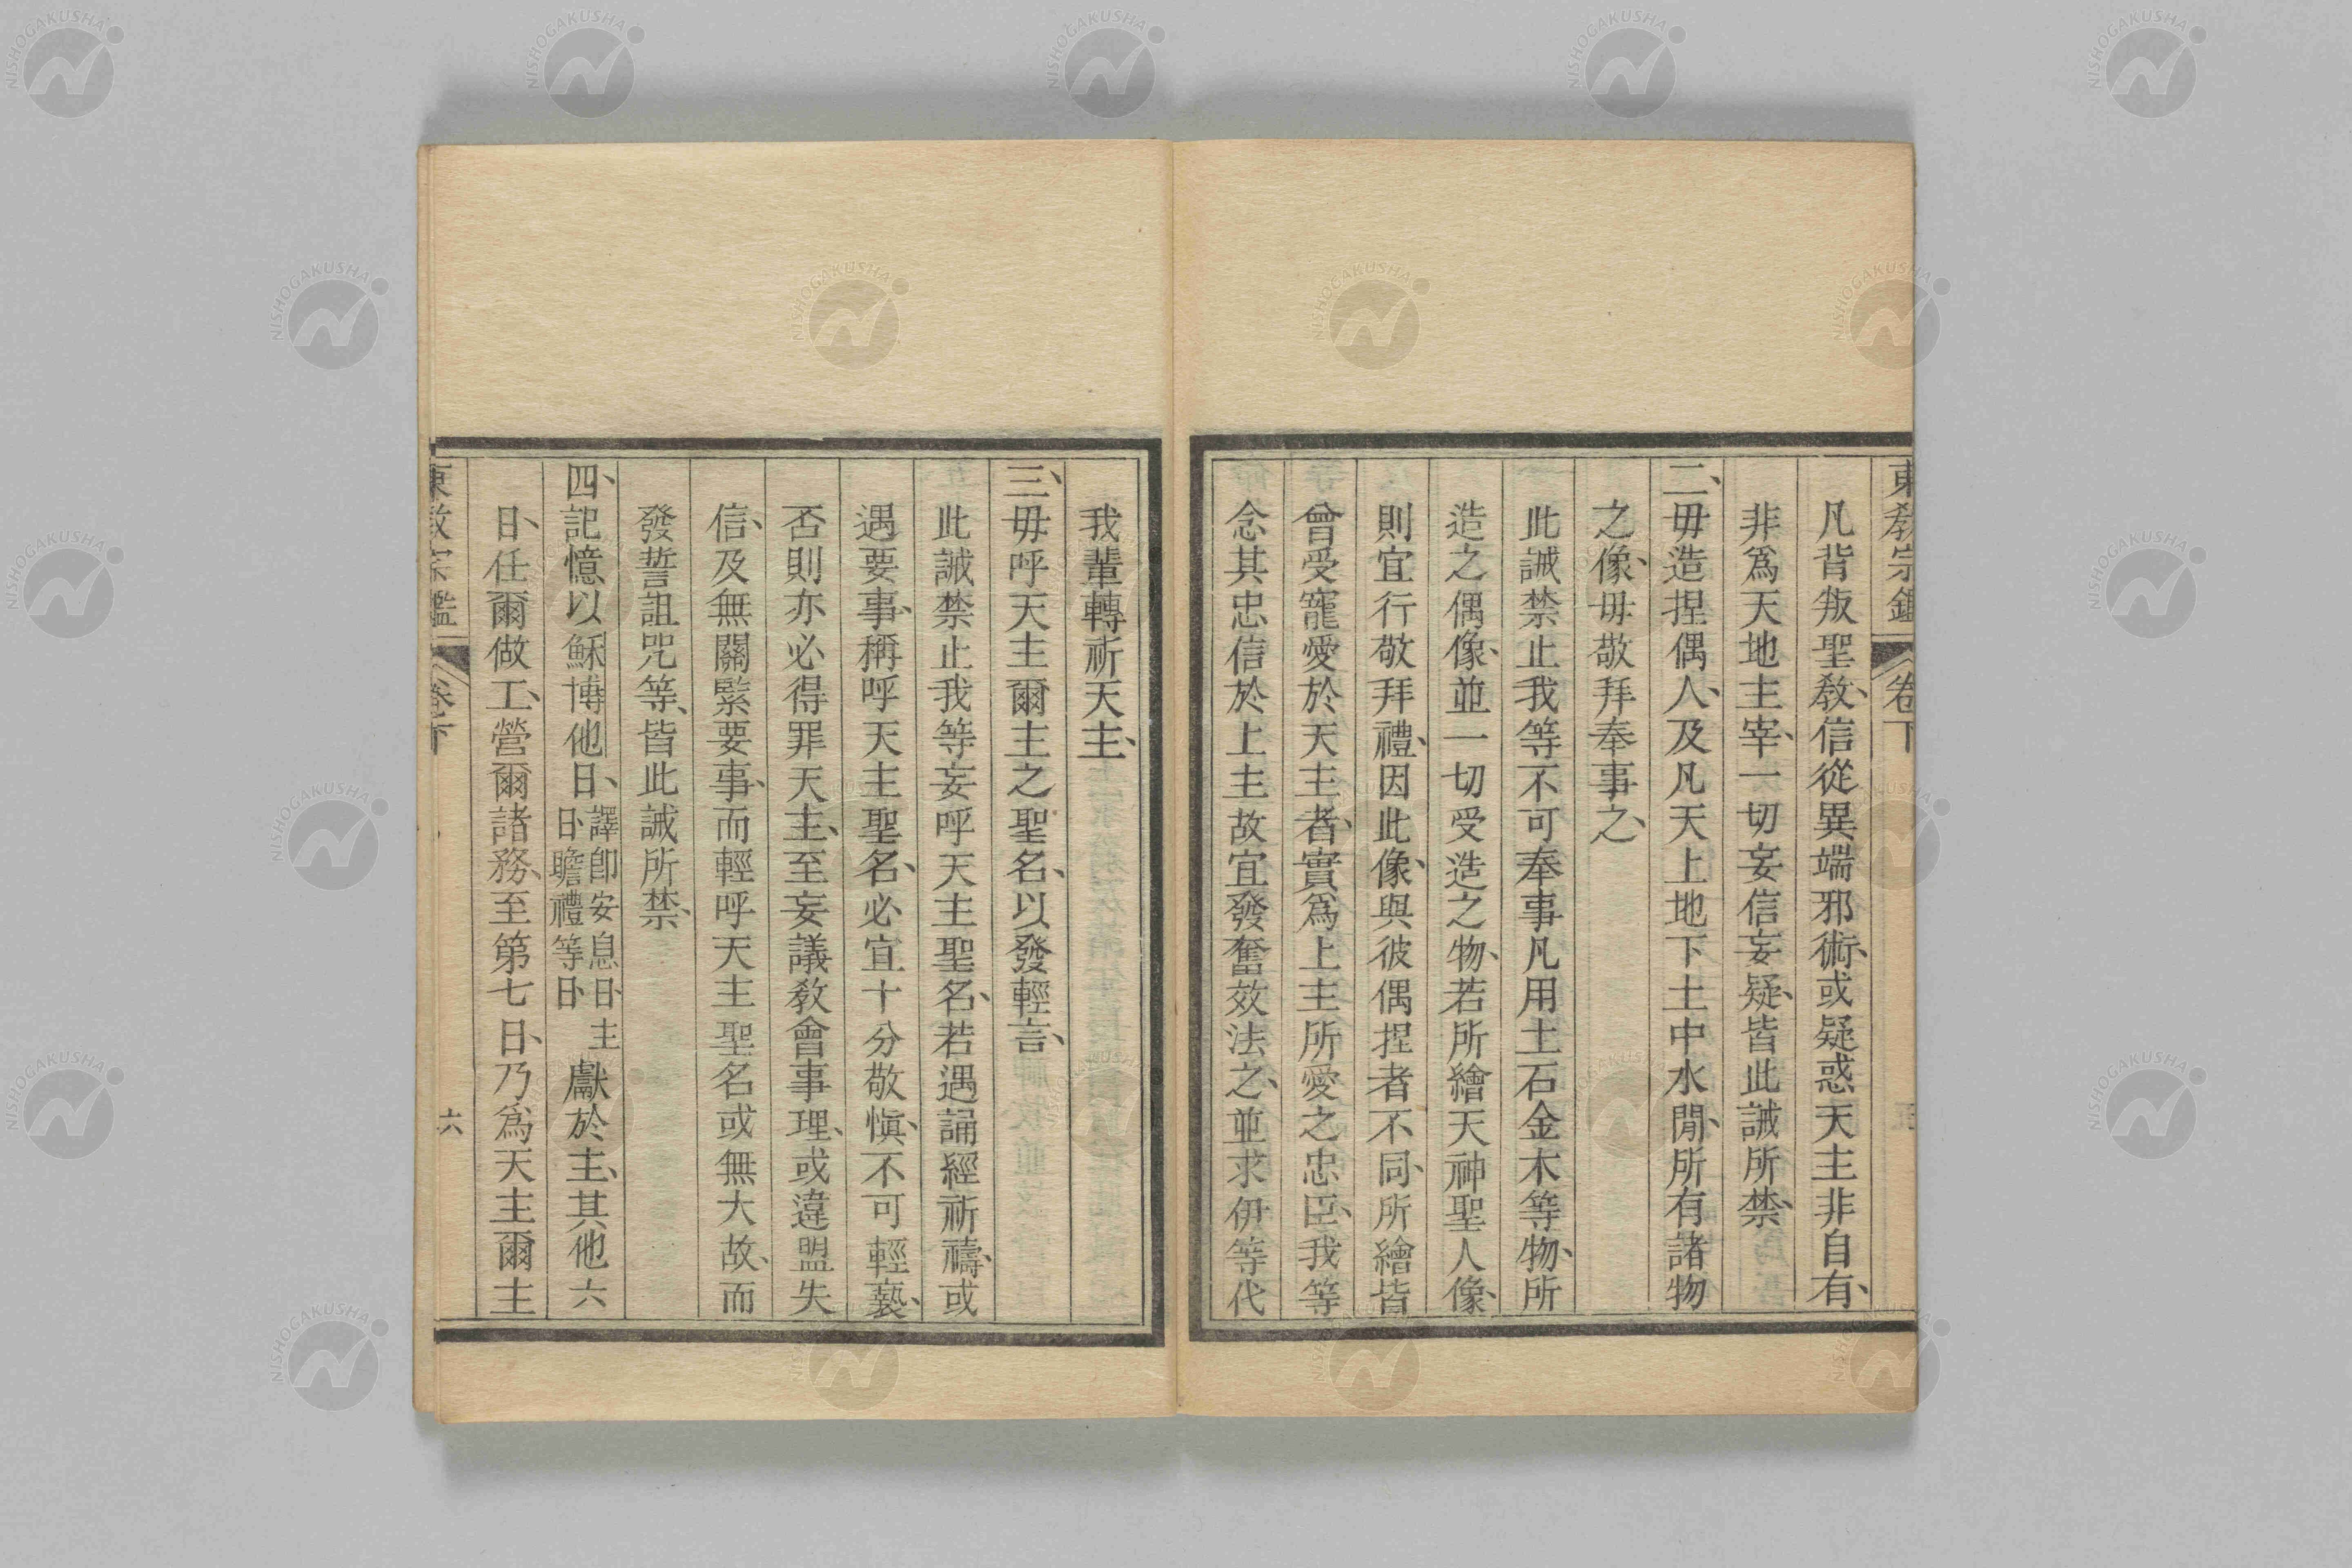 東教宗鑑 卷下
凡背叛聖教、信從異端邪術、或疑惑天主非自有、
非爲天地主宰、一切妄信妄疑、皆此誡所禁、
二、毋造捏偶人、及凡天上地下土中水閒、所有諸物
之像、毋敬拜奉事之、
此誡禁止我等不可奉事凡用土石金木等物、所
造之偶像、並一切受造之物、若所繪天神聖人像、
則宜行敬拜禮、因此像、與彼偶捏者不同、所繪皆
曾受寵愛於天主者、實爲上主所愛之忠臣、我等
念其忠信於上主故宜發奮效法之、並求伊等代
我輩轉祈天主、
三、毋呼天主爾主之聖名、以發輕言、
此誡禁止我等妄呼天主聖名、若遇誦經祈禱、或
遇要事、稱呼天主聖名、必宜十分敬愼、不可輕褻、
否則亦必得罪天主、至妄議敎會事理、或違盟失
信、及無關緊要事、而輕呼天主聖名或無大故、而
發誓詛咒等、皆此誡所禁、
四、記憶以穌博他日、譯卽安息日主日瞻禮等日獻於主、其他六
日、任爾做工、營爾諸務、至第七日、乃爲天主爾主
東教宗鑑 卷下 六
NISHOGAKUSHA